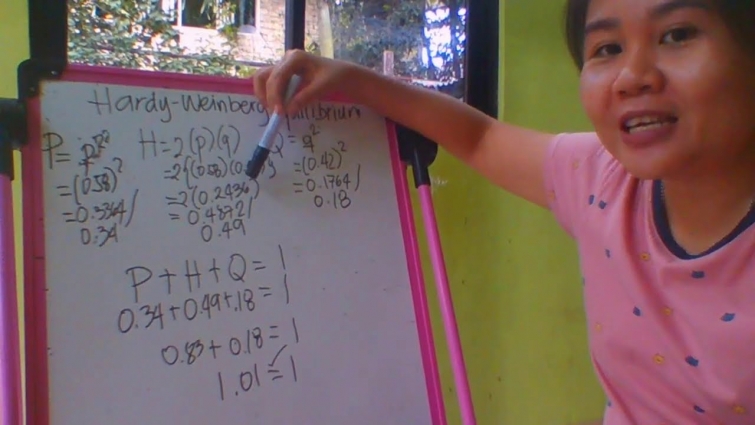 Hardy-Weinberg Equilibrium
P = p²
= (0.58)²
= 0.3364/
0.34
H = 2(p)(q)
= 2{(0.58)(0.
= 2(0.2436)
= 0.4872/
0.49
Q = q²
= (0.42)²
= 0.1764/
0.18
P + H + Q = 1
0.34 + 0.49 + .18 = 1
0.83 + 0.18 = 1
1.01 = 1